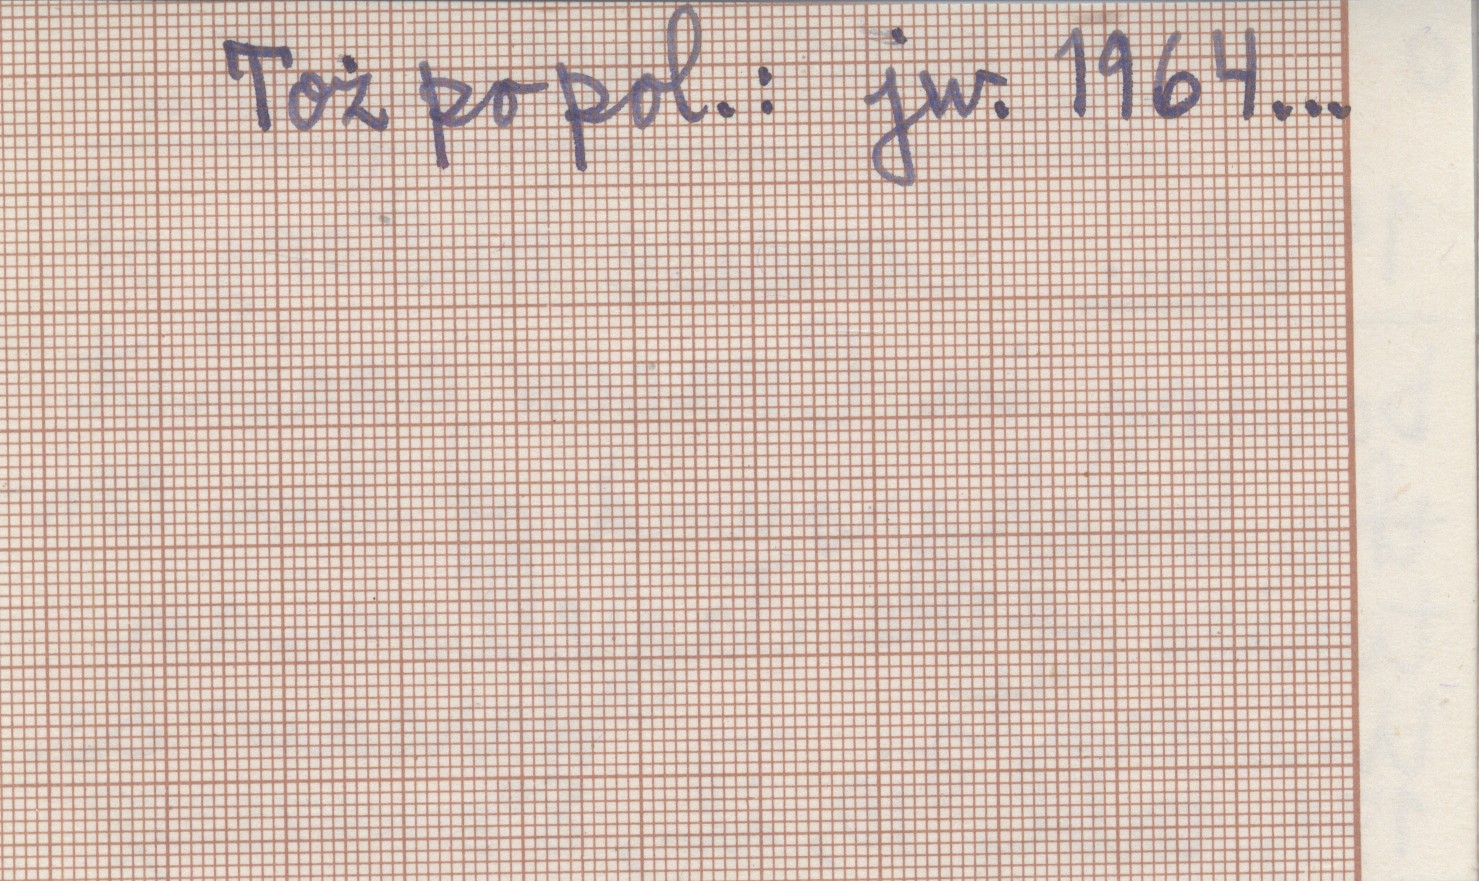 Toż po pol.: jw. 1964...